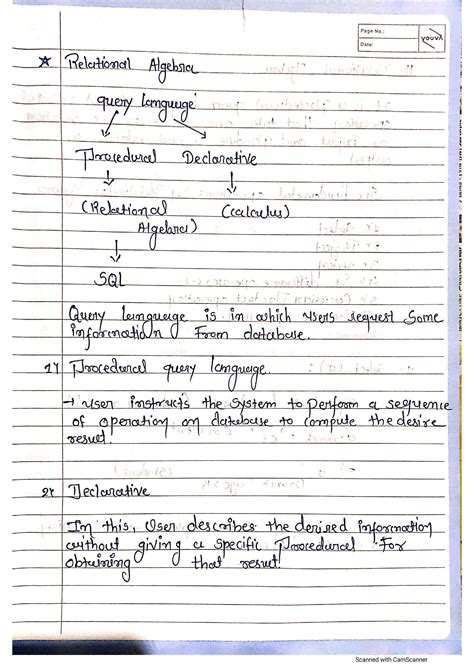 Page No.:
Date:
youva
★ Relational Algebra
query language
Procedural Declarative
(Relational Algebra) (calculus)
SQL
Query language is in which users request some
information from database.
1) Procedural query language.
→ User instructs the system to perform a sequence
of operation on database to compute the desire
result.
2) Declarative
In this, User describes the desired information
without giving a specific Procedural for
obtaining that result.
Scanned with CamScanner